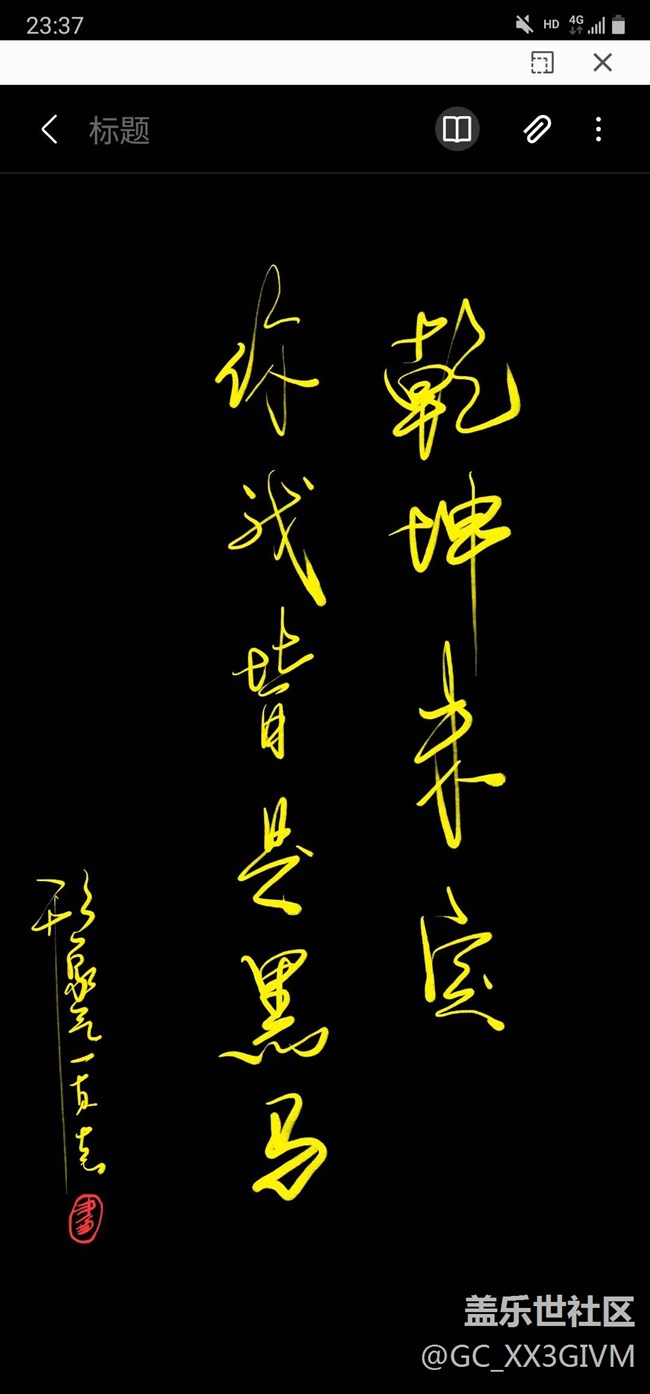 23:37
HD 4G
标题
乾坤未定
你我皆是黑马
盖乐世社区
@GC_XX3GIVM